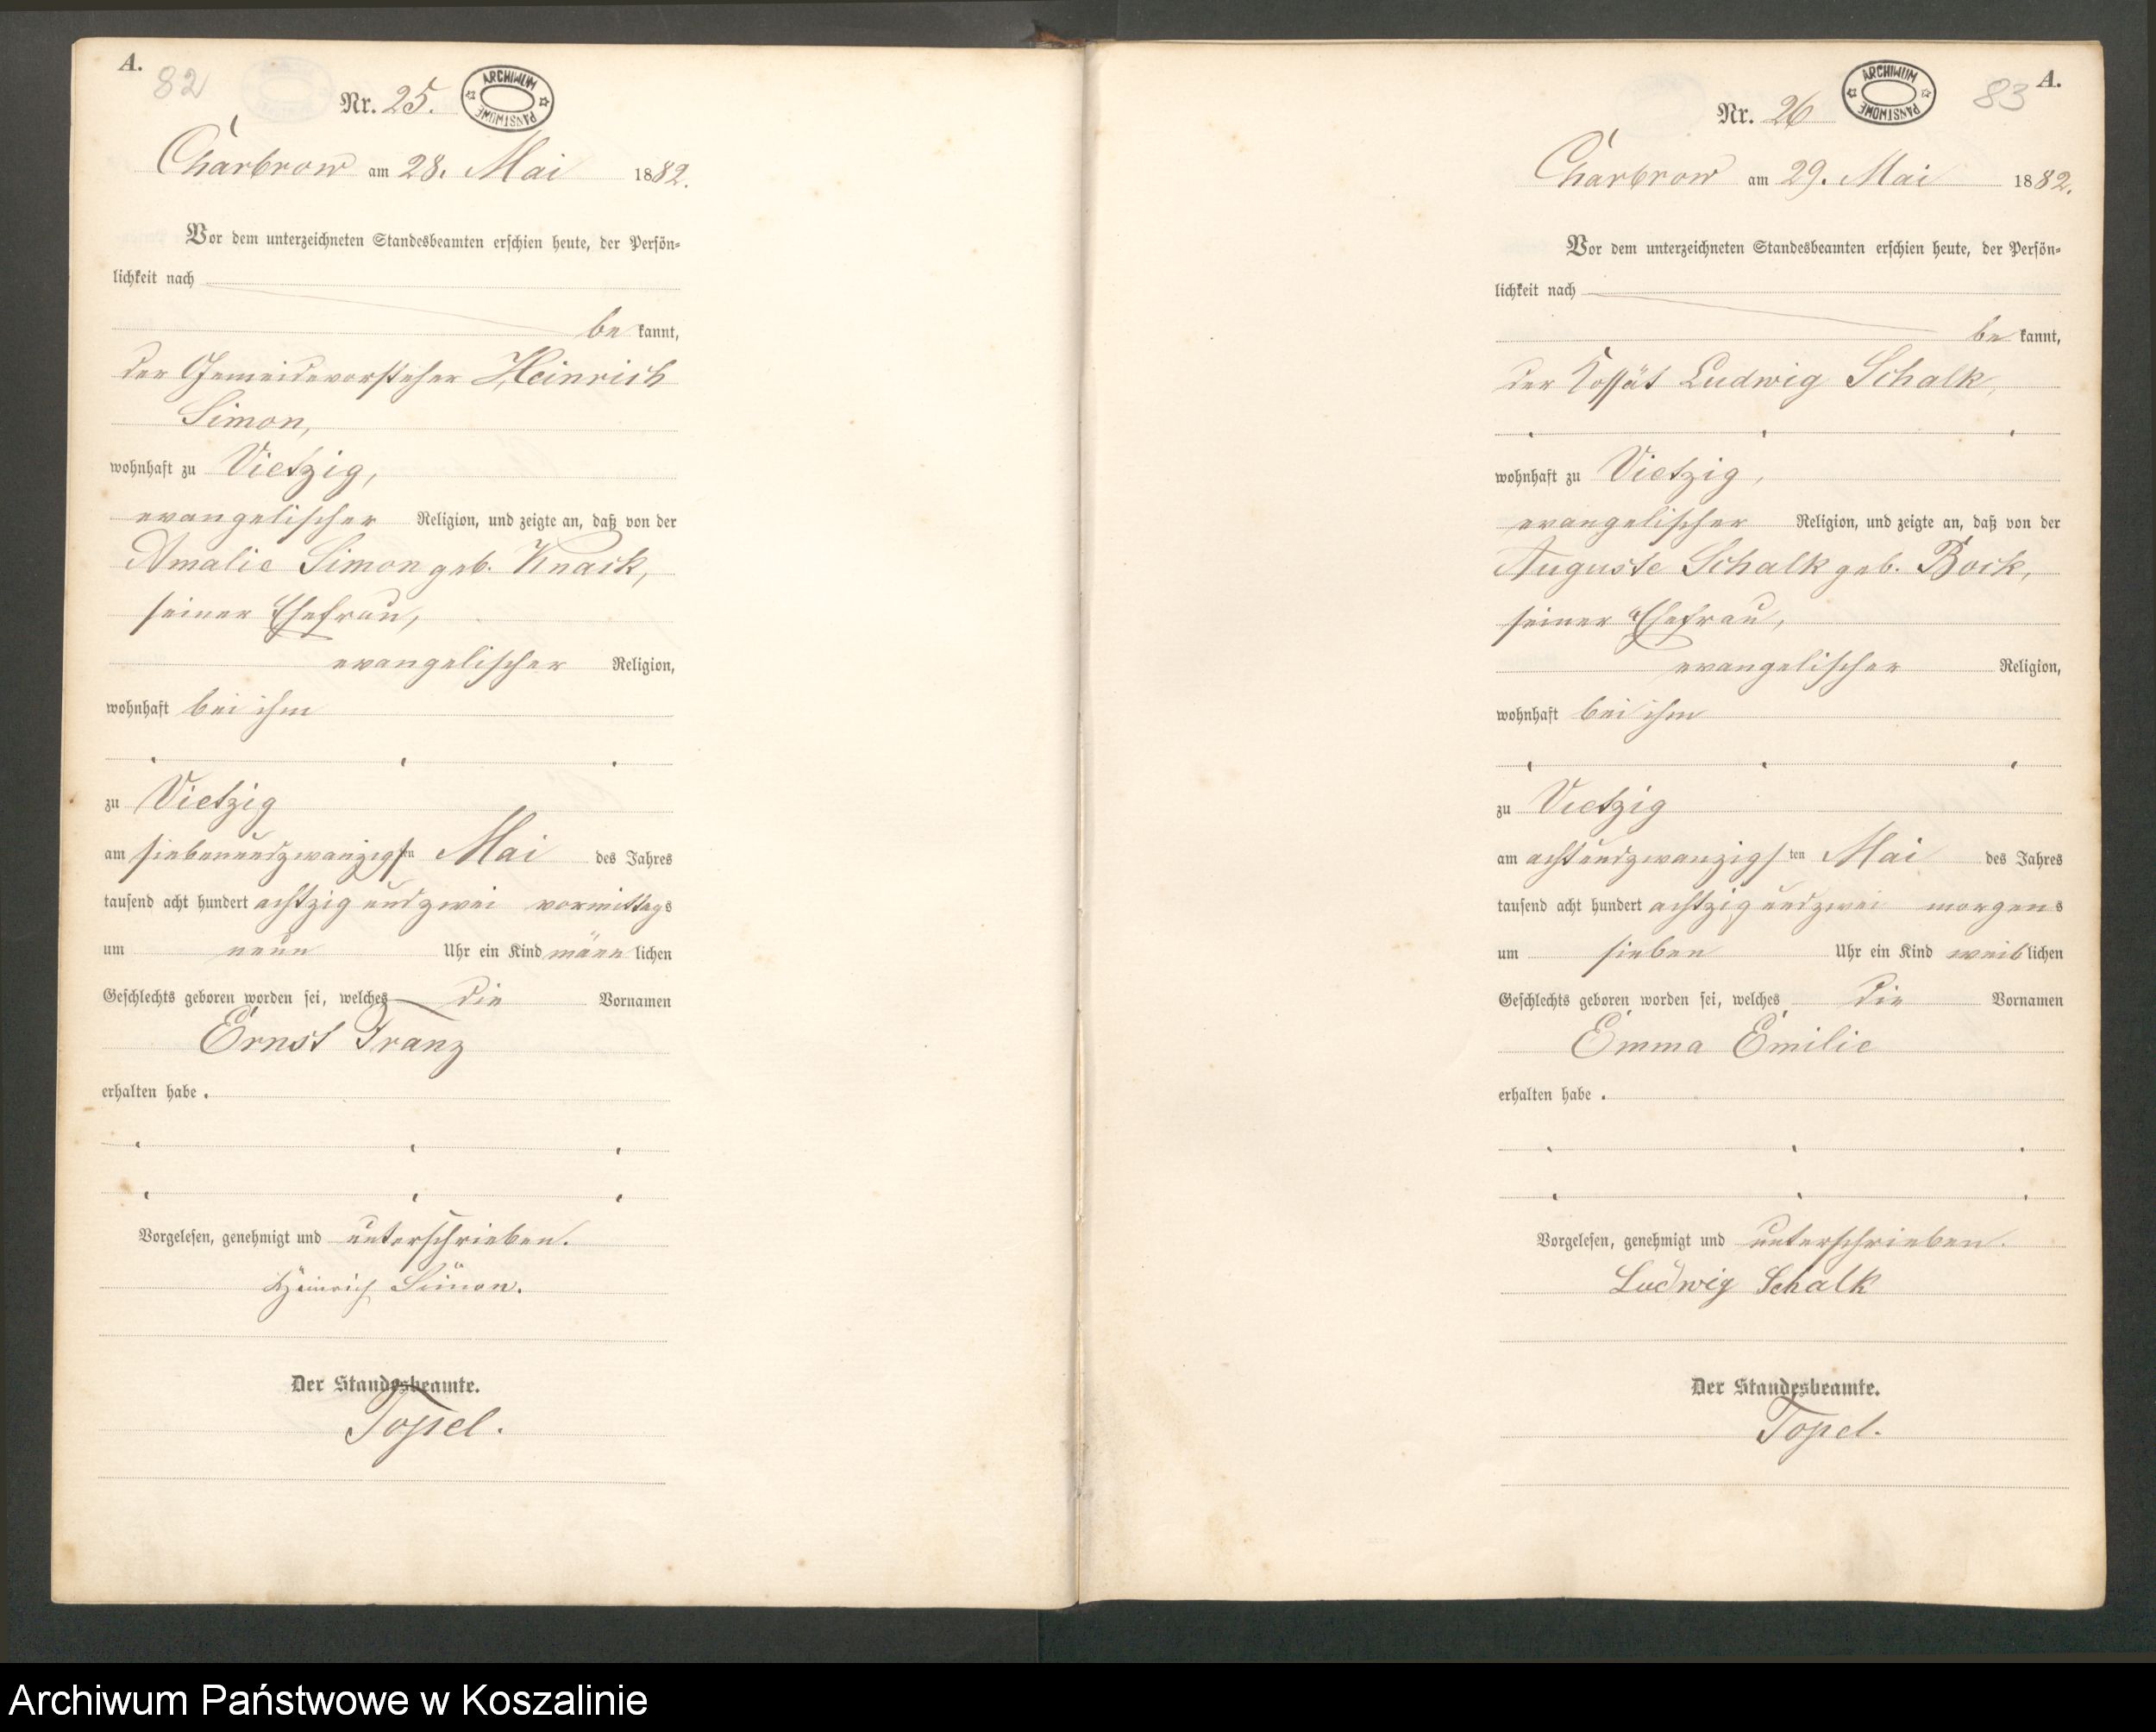 A.
82
Nr. 25.
ARCHIWUM PAŃSTWOWE
Charbrow am 28. Mai 1882.
Vor dem unterzeichneten Standesbeamten erschien heute, der Persön-
lichkeit nach
be kannt,
der Gemeindevorsteher Heinrich
Simon,
wohnhaft zu Vietzig,
evangelischer Religion, und zeigte an, daß von der
Amalie Simon geb. Knack,
seiner Ehefrau,
evangelischer Religion,
wohnhaft bei ihm
zu Vietzig
am siebenundzwanzigsten Mai des Jahres
tausend acht hundert achtzig und zwei vormittags
um neun Uhr ein Kind männlichen
Geschlechts geboren worden sei, welches die Vornamen
Ernst Franz
erhalten habe.
Vorgelesen, genehmigt und unterschrieben.
Heinrich Simon.
Der Standesbeamte.
Topel.
A.
83
Nr. 26
ARCHIWUM PAŃSTWOWE
Charbrow am 29. Mai 1882.
Vor dem unterzeichneten Standesbeamten erschien heute, der Persön-
lichkeit nach
be kannt,
der Kossät Ludwig Schalk,
wohnhaft zu Vietzig,
evangelischer Religion, und zeigte an, daß von der
Auguste Schalk geb. Bock,
seiner Ehefrau,
evangelischer Religion,
wohnhaft bei ihm
zu Vietzig
am achtundzwanzigsten Mai des Jahres
tausend acht hundert achtzig und zwei morgens
um sieben Uhr ein Kind weiblichen
Geschlechts geboren worden sei, welches die Vornamen
Emma Emilie
erhalten habe.
Vorgelesen, genehmigt und unterschrieben.
Ludwig Schalk
Der Standesbeamte.
Topel.
Archiwum Państwowe w Koszalinie